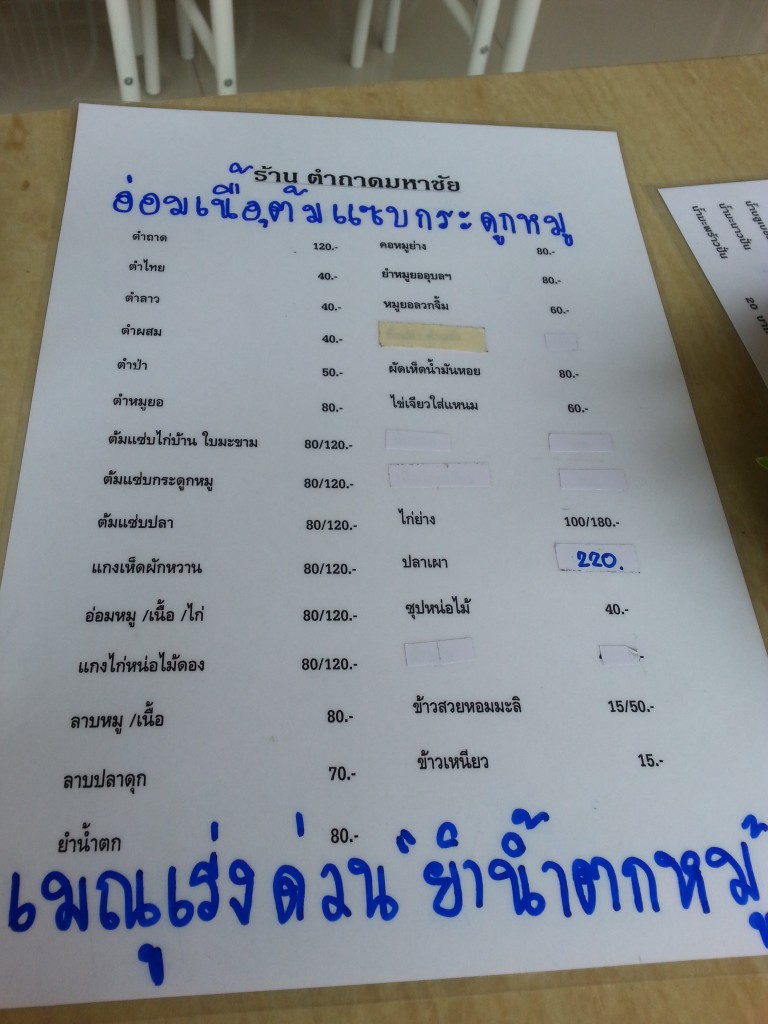 ร้าน ตำถาดมหาชัย
อ่อมเนื้อ,ต้มแซบกระดูกหมู
ตำถาด 120.-
ตำไทย 40.-
ตำลาว 40.-
ตำผสม 40.-
ตำป่า 50.-
ตำหมูยอ 80.-
ต้มแซ่บไก่บ้าน ใบมะขาม 80/120.-
ต้มแซ่บกระดูกหมู 80/120.-
ต้มแซ่บปลา 80/120.-
แกงเห็ดผักหวาน 80/120.-
อ่อมหมู /เนื้อ /ไก่ 80/120.-
แกงไก่หน่อไม้ดอง 80/120.-
ลาบหมู /เนื้อ 80.-
ลาบปลาดุก 70.-
ยำน้ำตก 80.-
คอหมูย่าง 80.-
ยำหมูยออุบลฯ 80.-
หมูยอลวกจิ้ม 60.-
ผัดเห็ดน้ำมันหอย 80.-
ไข่เจียวใส่แหนม 60.-
ไก่ย่าง 100/180.-
ปลาเผา 220.
ซุปหน่อไม้ 40.-
ข้าวสวยหอมมะลิ 15/50.-
ข้าวเหนียว 15.-
เมณูเร่งด่วน "ยำน้ำตกหมู
น้ำมะนาวปั่น
น้ำมะพร้าวปั่น
20